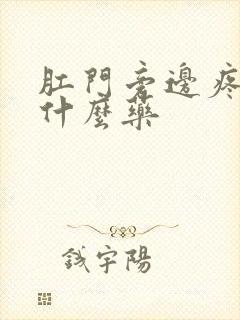 肛門旁邊疼
什麼藥
鉞宇陽